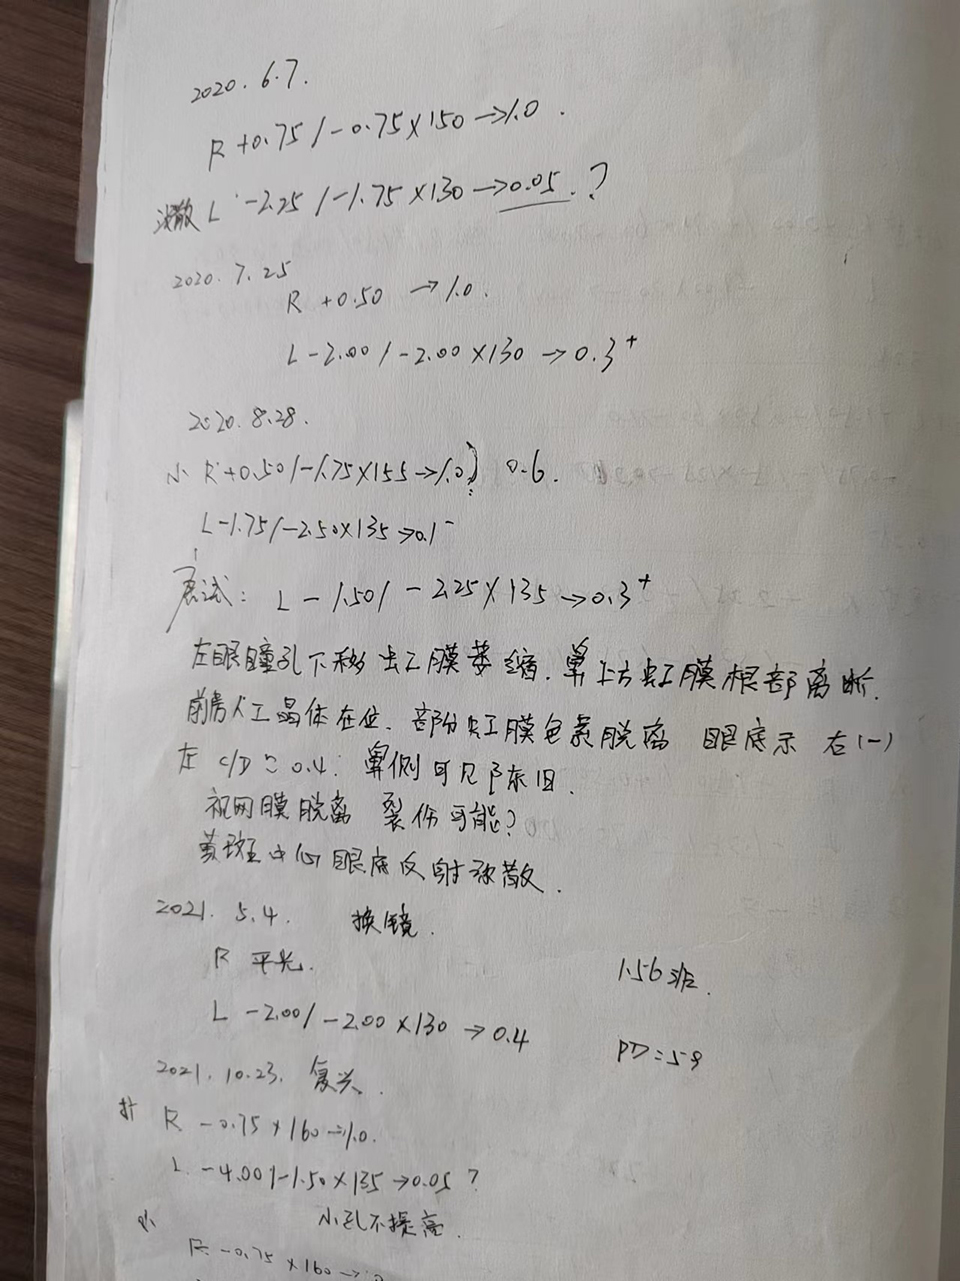 2020.6.7.
R +0.75/-0.75×150→1.0.
散 L -2.25/-1.75×130→0.05.?
2020.7.25
R +0.50 →1.0.
L -2.00/-2.00×130→0.3+
2020.8.28.
小 R +0.50/-1.75×155→1.0) 0.6.
L -1.75/-2.50×135→0.1-
试: L -1.50/-2.25×135→0.3+
左眼瞳孔下移 虹膜萎缩. 鼻上方虹膜根部离断.
前房人工晶体在位. 部分虹膜色素脱离 眼底示 右(-)
左 C/D≈0.4: 鼻侧可见陈旧.
视网膜脱离 裂伤可能?
黄斑中心眼底反射弥散.
2021.5.4. 换镜.
R 平光. 1.56
L -2.00/-2.00×130→0.4
PD=59
2021.10.23. 复光.
R -0.75×160→1.0.
L -4.00/-1.50×135→0.05?
小孔不提高.
小
R -0.75×160→